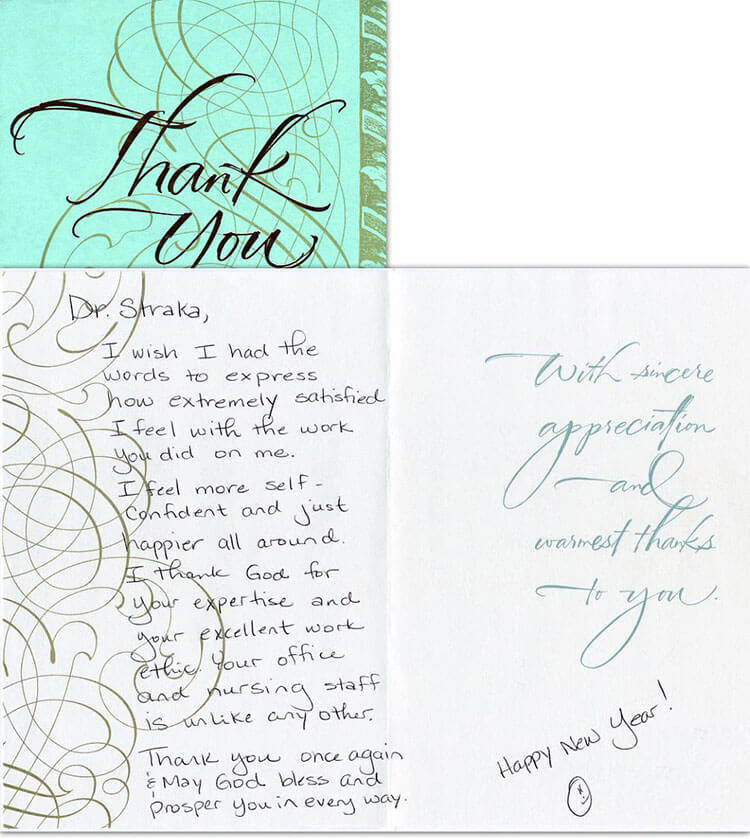 Thank
You
Dr. Straka,
I wish I had the
words to express
how extremely satisfied
I feel with the work
you did on me.
I feel more self-
confident and just
happier all around.
I thank God for
your expertise and
your excellent work
ethic. Your office
and nursing staff
is unlike any other.
Thank you once again
& May God bless and
prosper you in every way.
With sincere
appreciation
and
warmest thanks
to you.
Happy New Year!